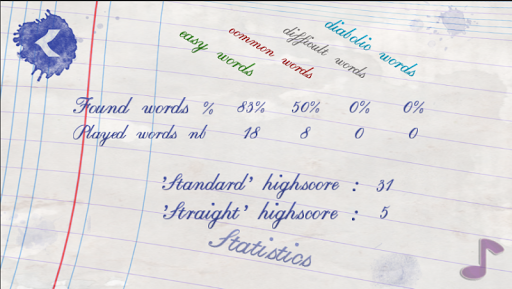 easy words common words difficult words diabolic words
Found words % 83% 50% 0% 0%
Played words nb 18 8 0 0
'Standard' highscore : 31
'Straight' highscore : 5
Statistics